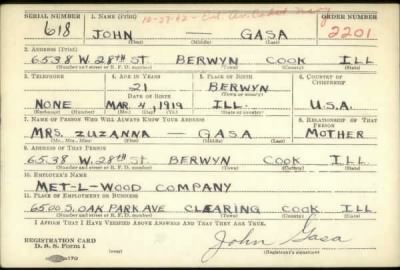 SERIAL NUMBER 1. NAME (Print) ORDER NUMBER
618 JOHN — GASA 2201
(First) (Middle) (Last)
2. ADDRESS (Print)
6538 W. 28TH ST. BERWYN COOK ILL
(Number and street or R. F. D. number) (Town) (County) (State)
3. TELEPHONE 4. AGE IN YEARS 5. PLACE OF BIRTH 6. COUNTRY OF CITIZENSHIP
21 BERWYN
DATE OF BIRTH (Town or county)
NONE MAR. 4, 1919 ILL. U.S.A.
(Exchange) (Number) (Mo.) (Day) (Yr.) (State or country)
7. NAME OF PERSON WHO WILL ALWAYS KNOW YOUR ADDRESS 8. RELATIONSHIP OF THAT PERSON
MRS. ZUZANNA — GASA MOTHER
(Mr., Mrs., Miss) (First) (Middle) (Last)
9. ADDRESS OF THAT PERSON
6538 W. 28TH ST. BERWYN COOK ILL
(Number and street or R. F. D. number) (Town) (County) (State)
10. EMPLOYER'S NAME
MET-L-WOOD COMPANY
11. PLACE OF EMPLOYMENT OR BUSINESS
6500 S. OAK PARK AVE CLEARING COOK ILL
(Number and street or R. F. D. number) (Town) (County) (State)
I AFFIRM THAT I HAVE VERIFIED ABOVE ANSWERS AND THAT THEY ARE TRUE.
REGISTRATION CARD
D. S. S. Form 1 John Gasa
(Registrant's signature)